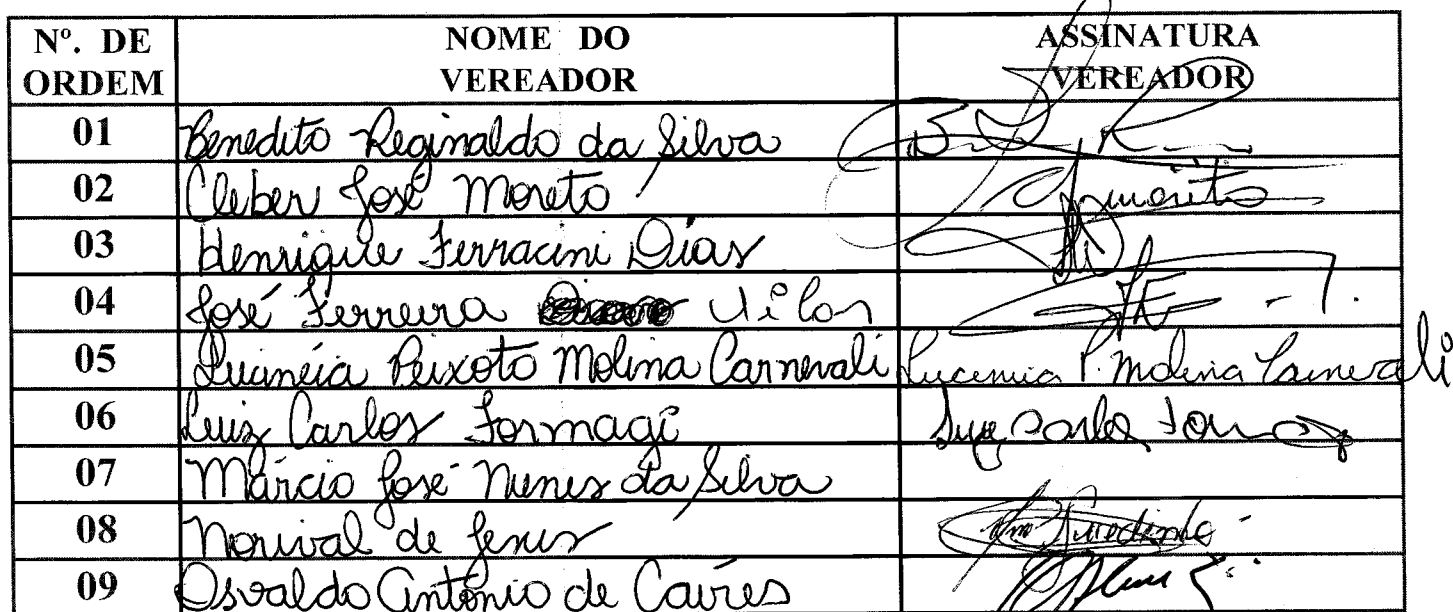 Nº. DE ORDEM NOME DO VEREADOR ASSINATURA VEREADOR
01 Benedito Reginaldo da Silva
02 Cleber José Moreto
03 Henrique Ferracini Dias
04 José Ferreira
05 Peixoto Molina Carnevali P. Molina Carnevali
06 Luiz Carlos Formagi Luiz Carlos
07 Márcio José Nunes da Silva
08 Norival de Jesus
09 Osvaldo Antônio de Caires